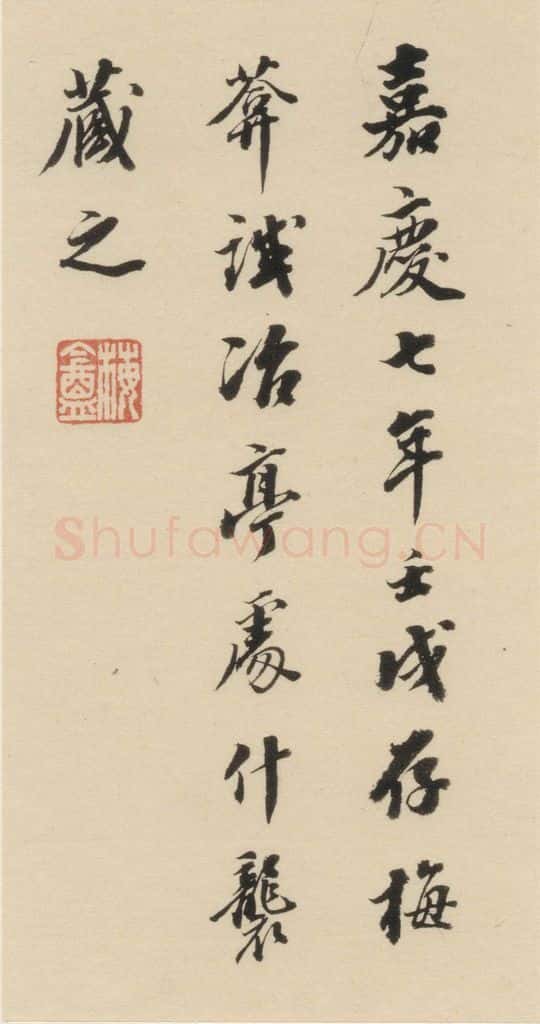 嘉慶七年壬戌存梅
葊鐵冶亭處什襲
藏之
梅盦
Shufawang.CN